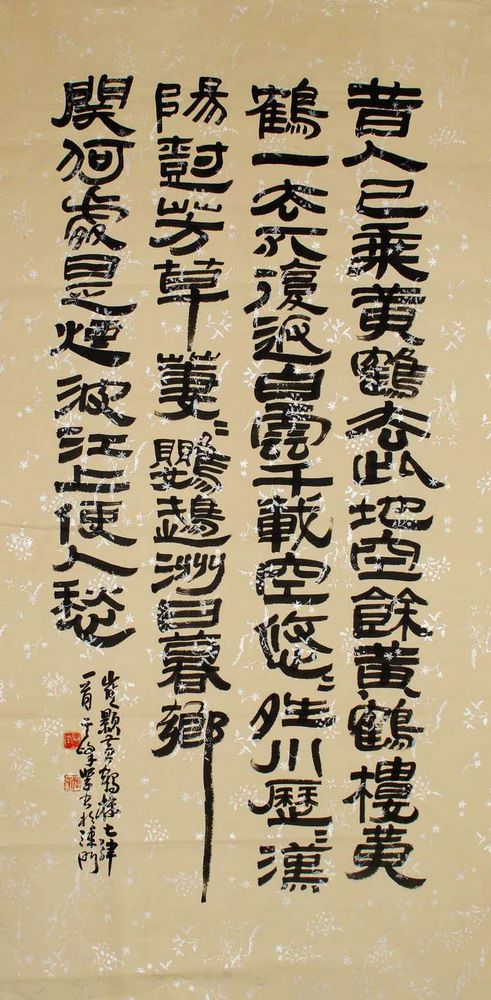 昔人已乘黃鶴去此地空餘黃鶴樓黃
鶴一去不復返白雲千載空悠〻晴川歷〻漢
陽樹芳草萋〻鸚鵡洲日暮鄉
關何處是烟波江上使人愁
崔顥黃鶴樓七律
一首 書於津門